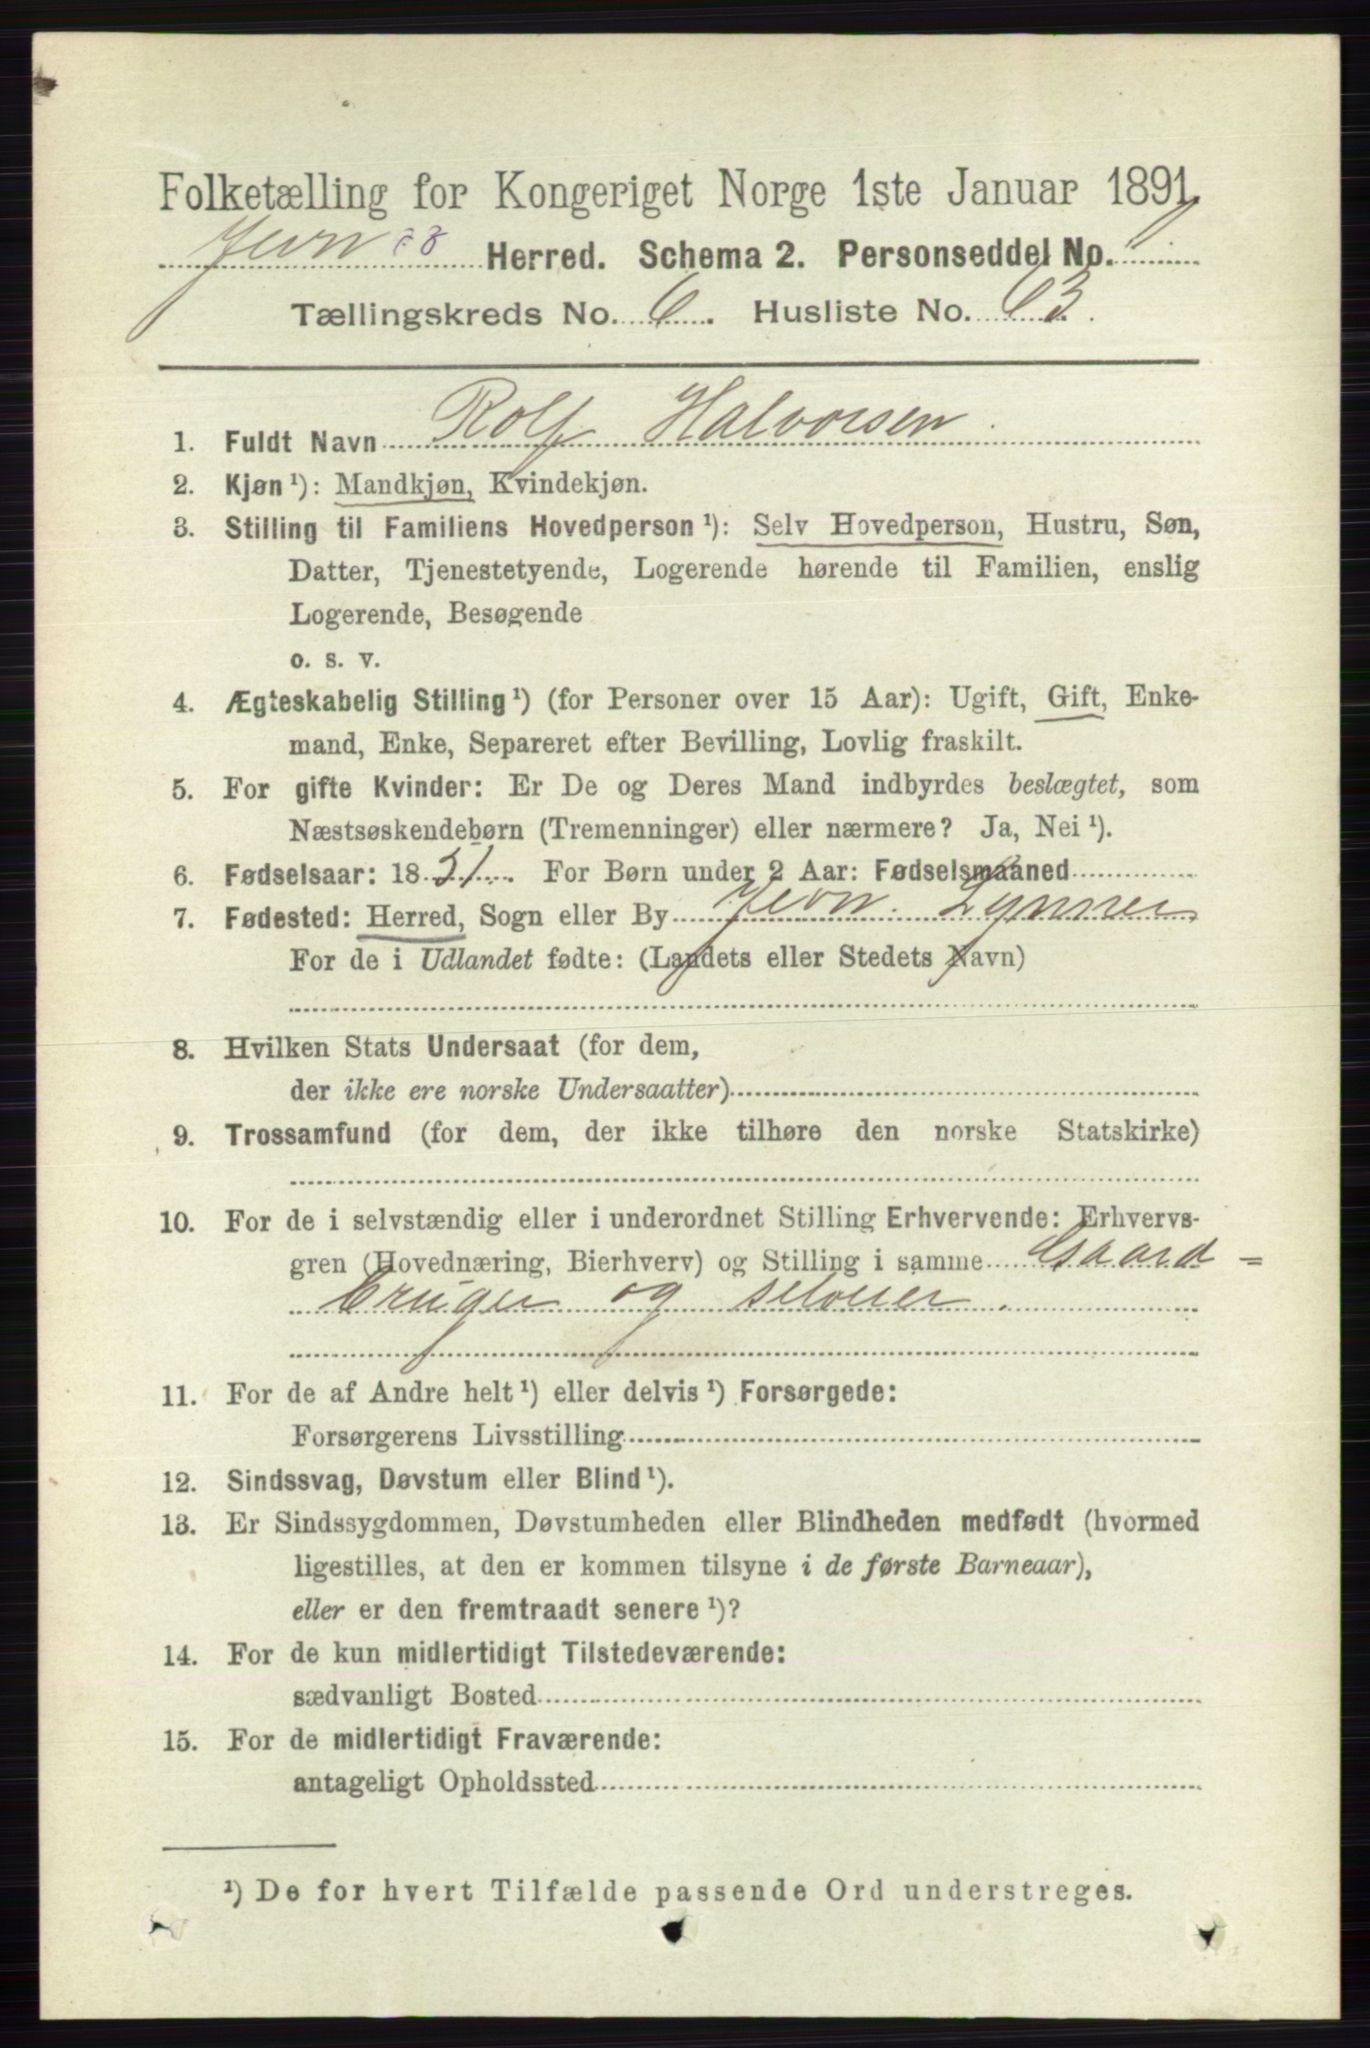 Folketælling for Kongeriget Norge 1ste Januar 1891.
Jevn Herred. Schema 2. Personseddel No. 1.
Tællingskreds No. 6. Husliste No. 63.
1. Fuldt Navn Rolf Halvorsen.
2. Kjøn ¹): Mandkjøn, Kvindekjøn.
3. Stilling til Familiens Hovedperson ¹): Selv Hovedperson, Hustru, Søn,
Datter, Tjenestetyende, Logerende hørende til Familien, enslig
Logerende, Besøgende
o. s. v.
4. Ægteskabelig Stilling ¹) (for Personer over 15 Aar): Ugift, Gift, Enke-
mand, Enke, Separeret efter Bevilling, Lovlig fraskilt.
5. For gifte Kvinder: Er De og Deres Mand indbyrdes beslægtet, som
Næstsøskendebørn (Tremenninger) eller nærmere? Ja, Nei ¹).
6. Fødselsaar: 1851. For Børn under 2 Aar: Fødselsmaaned
7. Fødested: Herred, Sogn eller By Jevn.
For de i Udlandet fødte: (Landets eller Stedets Navn)
8. Hvilken Stats Undersaat (for dem,
der ikke ere norske Undersaatter)
9. Trossamfund (for dem, der ikke tilhøre den norske Statskirke)
10. For de i selvstændig eller i underordnet Stilling Erhvervende: Erhvervs-
gren (Hovednæring, Bierhverv) og Stilling i samme Gaard=
bruger og selveier.
11. For de af Andre helt ¹) eller delvis ¹) Forsørgede:
Forsørgerens Livsstilling
12. Sindssvag, Døvstum eller Blind ¹).
13. Er Sindssygdommen, Døvstumheden eller Blindheden medfødt (hvormed
ligestilles, at den er kommen tilsyne i de første Barneaar),
eller er den fremtraadt senere ¹)?
14. For de kun midlertidigt Tilstedeværende:
sædvanligt Bosted
15. For de midlertidigt Fraværende:
antageligt Opholdssted
¹) De for hvert Tilfælde passende Ord understreges.